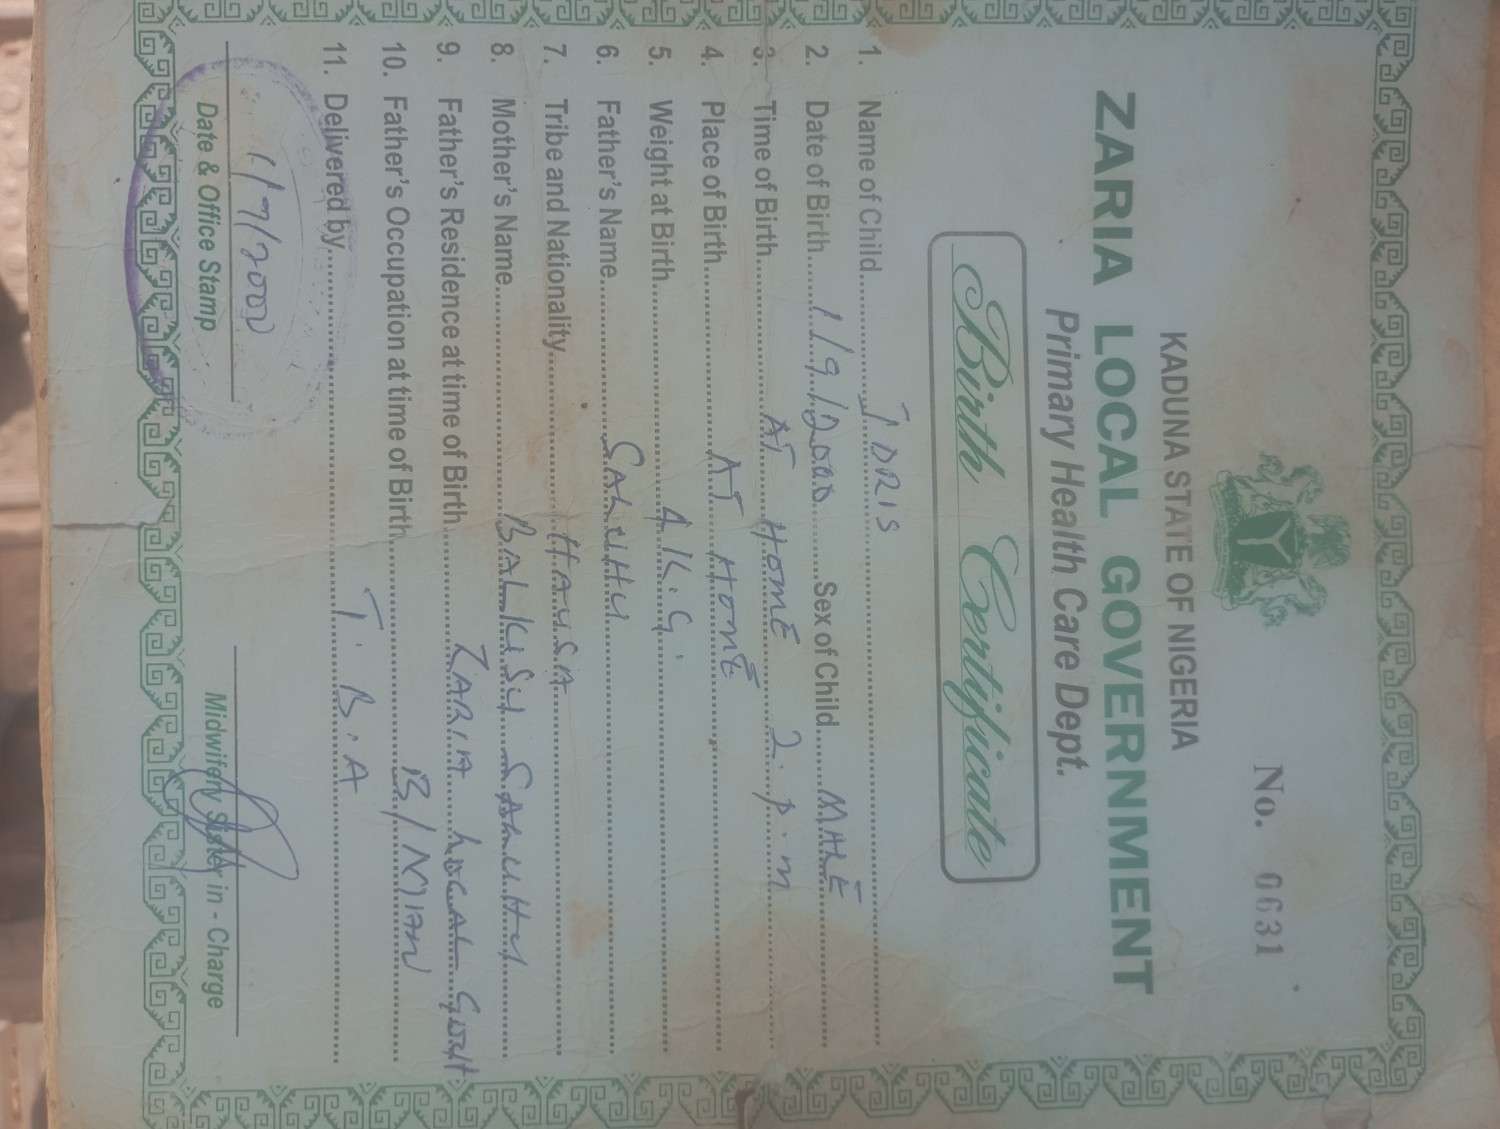 No. 0631
KADUNA STATE OF NIGERIA
ZARIA LOCAL GOVERNMENT
Primary Health Care Dept.
Birth Certificate
1. Name of Child IDRIS
2. Date of Birth 1/9/2000 Sex of Child MALE
3. Time of Birth AT HOME 2.p.m
4. Place of Birth AT HOME
5. Weight at Birth 4 K.G.
6. Father's Name SALEHU
7. Tribe and Nationality HAUSA
8. Mother's Name BALKISU SALEHU
9. Father's Residence at time of Birth ZARIA LOCAL GOVT
10. Father's Occupation at time of Birth B/MAN
11. Delivered by T.B.A
1/9/2000
Date & Office Stamp
Midwifery Sister in - Charge